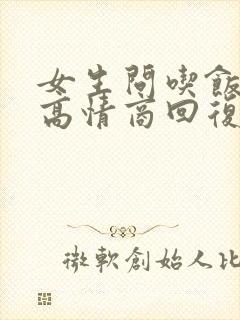 女生問喫飯
高情商回復
微軟創始人比